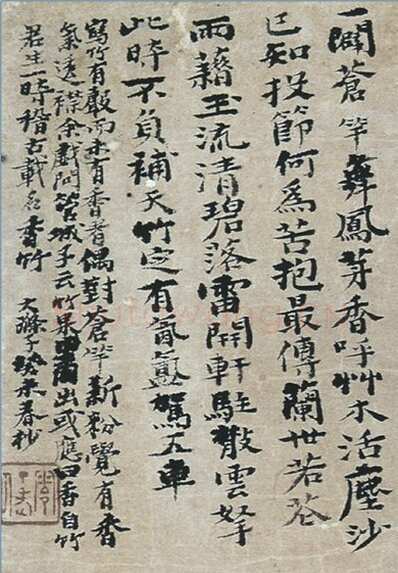 一闢蒼竿舞鳳芽香呼艸木活塵沙
已知投節何為苦抱最傳蘭世若苍
雨藉玉流清碧落雷開軒駐散雲
此時不負補天竹定有氤氲駕五車
寫竹有聲而未有香者偶對蒼竿新粉覺有香
氣透襟余戲問管城子云竹果出或應曰香自竹
君生一時稽古載名香竹
大滌子癸未春杪